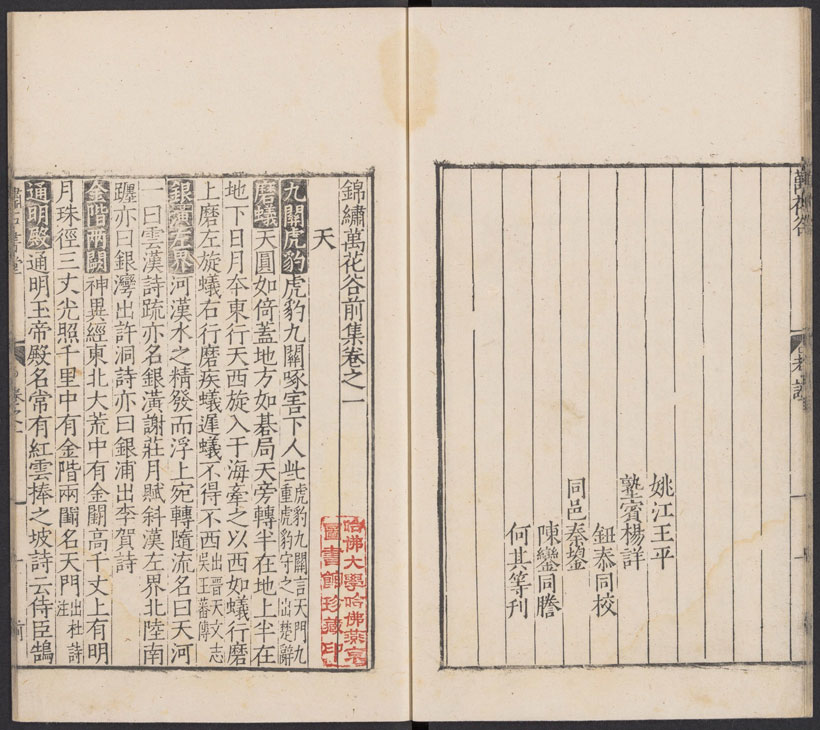 姚江王平
塾賓楊詳
鈕泰同校
同邑秦鋆
陳鑾同謄
何其等刊
錦繡萬花谷前集卷之一
天
九關虎豹 虎豹九關啄害下人些 虎豹九關言天門九重虎豹守之出楚辭
磨蟻 天圓如倚蓋地方如碁局天旁轉半在地上半在
地下日月夲東行天西旋入于海牽之以西如蟻行磨
上磨左旋蟻右行磨疾蟻遲蟻不得不西 出晋天文志吳王蕃傳
銀潢左界 河漢水之精發而浮上宛轉隨流名曰天河
一曰雲漢詩疏亦名銀潢謝莊月賦斜漢左界北陸南
躔亦曰銀灣出許洞詩亦曰銀浦出李賀詩
金階兩闕 神異經東北大荒中有金闕高千丈上有明
月珠徑三丈光照千里中有金階兩闕名天門 出杜詩注
通明殿 通明玉帝殿名常有紅雲捧之坡詩云侍臣鵠
哈佛大學哈佛燕京
圖書館珍藏印